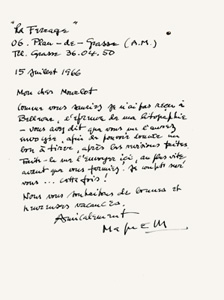 "La Firaga"
06. Plan-de-Grasse (A.M.)
Tel. Grasse 36.04.50
15 Juillet 1966
Mon cher Mourlot
Comme vous saviez je n'ai pas reçu à
l'épreuve de ma litographie
- vous avez dit que vous me l'aurez
envoyée, afin de pouvoir donner un
bon à tirer, après les révisions faites
Faite-le me l'envoyer içi, au plus vite
avant que vous fermiez. Je compte sur
vous ... cette fois!
Nous vous souhaitons de bonnes et
heureuses vacances.
Amicalement